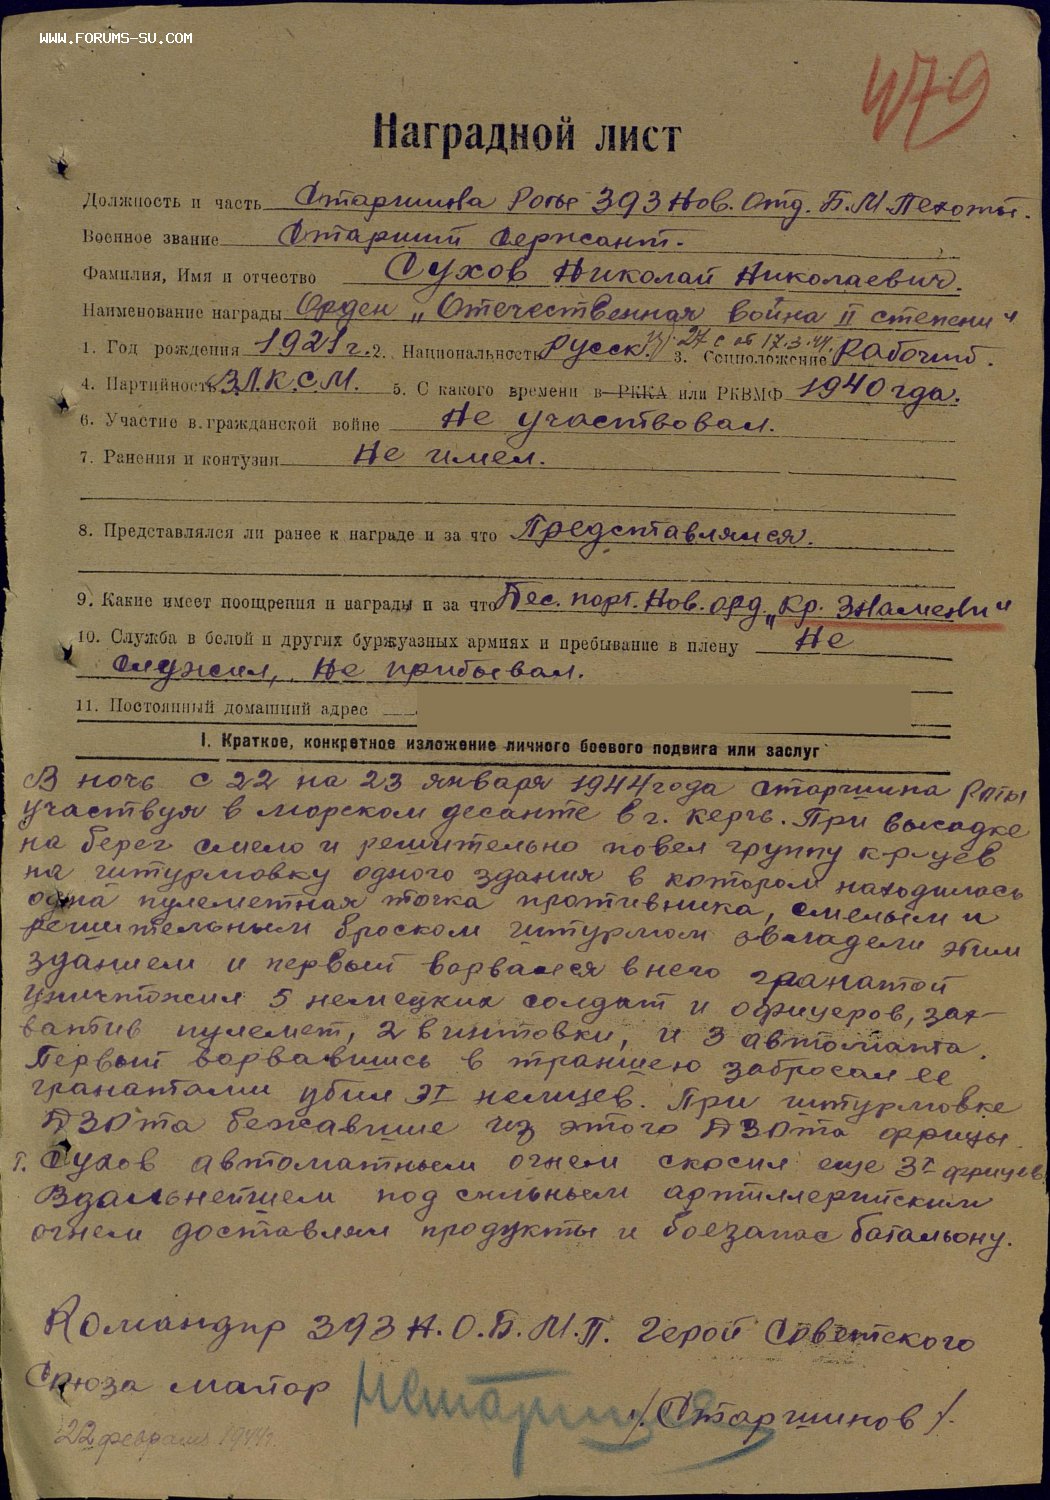 WWW.FORUMS-SU.COM
479
Наградной лист
Должность и часть Старшина роты 393 Нов. Отд. Б.М.Пехоты.
Военное звание Старший Сержант.
Фамилия, Имя и отчество Сухов Николай Николаевич.
Наименование награды Орден „Отечественная война II степени"
1. Год рождения 1921 г. 2. Национальность Русск. 3. Соцположение Рабочий.
пр. 27 с от 17.3.44
4. Партийность В.Л.К.С.М. 5. С какого времени в РККА или РКВМФ 1940 года.
6. Участие в гражданской войне Не участвовал.
7. Ранения и контузии Не имел.
8. Представлялся ли ранее к награде и за что Представлялся.
9. Какие имеет поощрения и награды и за что Дес. порт. Нов. орд „Кр. Знамени"
10. Служба в белой и других буржуазных армиях и пребывание в плену Не
служил, Не прибывал.
11. Постоянный домашний адрес
I. Краткое, конкретное изложение личного боевого подвига или заслуг
В ночь с 22 на 23 января 1944 года старшина роты
участвуя в морском десанте в г. Керчь. При высадке
на берег смело и решительно повел группу кр-цев
на штурмовку одного здания в котором находилась
одна пулеметная точка противника, смелым и
решительным броском штурмом овладели этим
зданием и первый ворвался в него гранатой
уничтожил 5 немецких солдат и офицеров, зах-
ватив пулемет, 2 винтовки, и 3 автомата.
Первый ворвавшись в траншею забросал ее
гранатами убил 3х немцев. При штурмовке
ДЗОта бежавшие из этого ДЗОта фрицы
т. Сухов автоматным огнем скосил еще 3х фрицев
Вдальнейшем под сильным артиллерийским
огнем доставлял продукты и боезапас батальону.
Командир 393 Н.О.Б.М.П. Герой Советского
Союза майор /Старшинов/.
22 февраля 1944г.